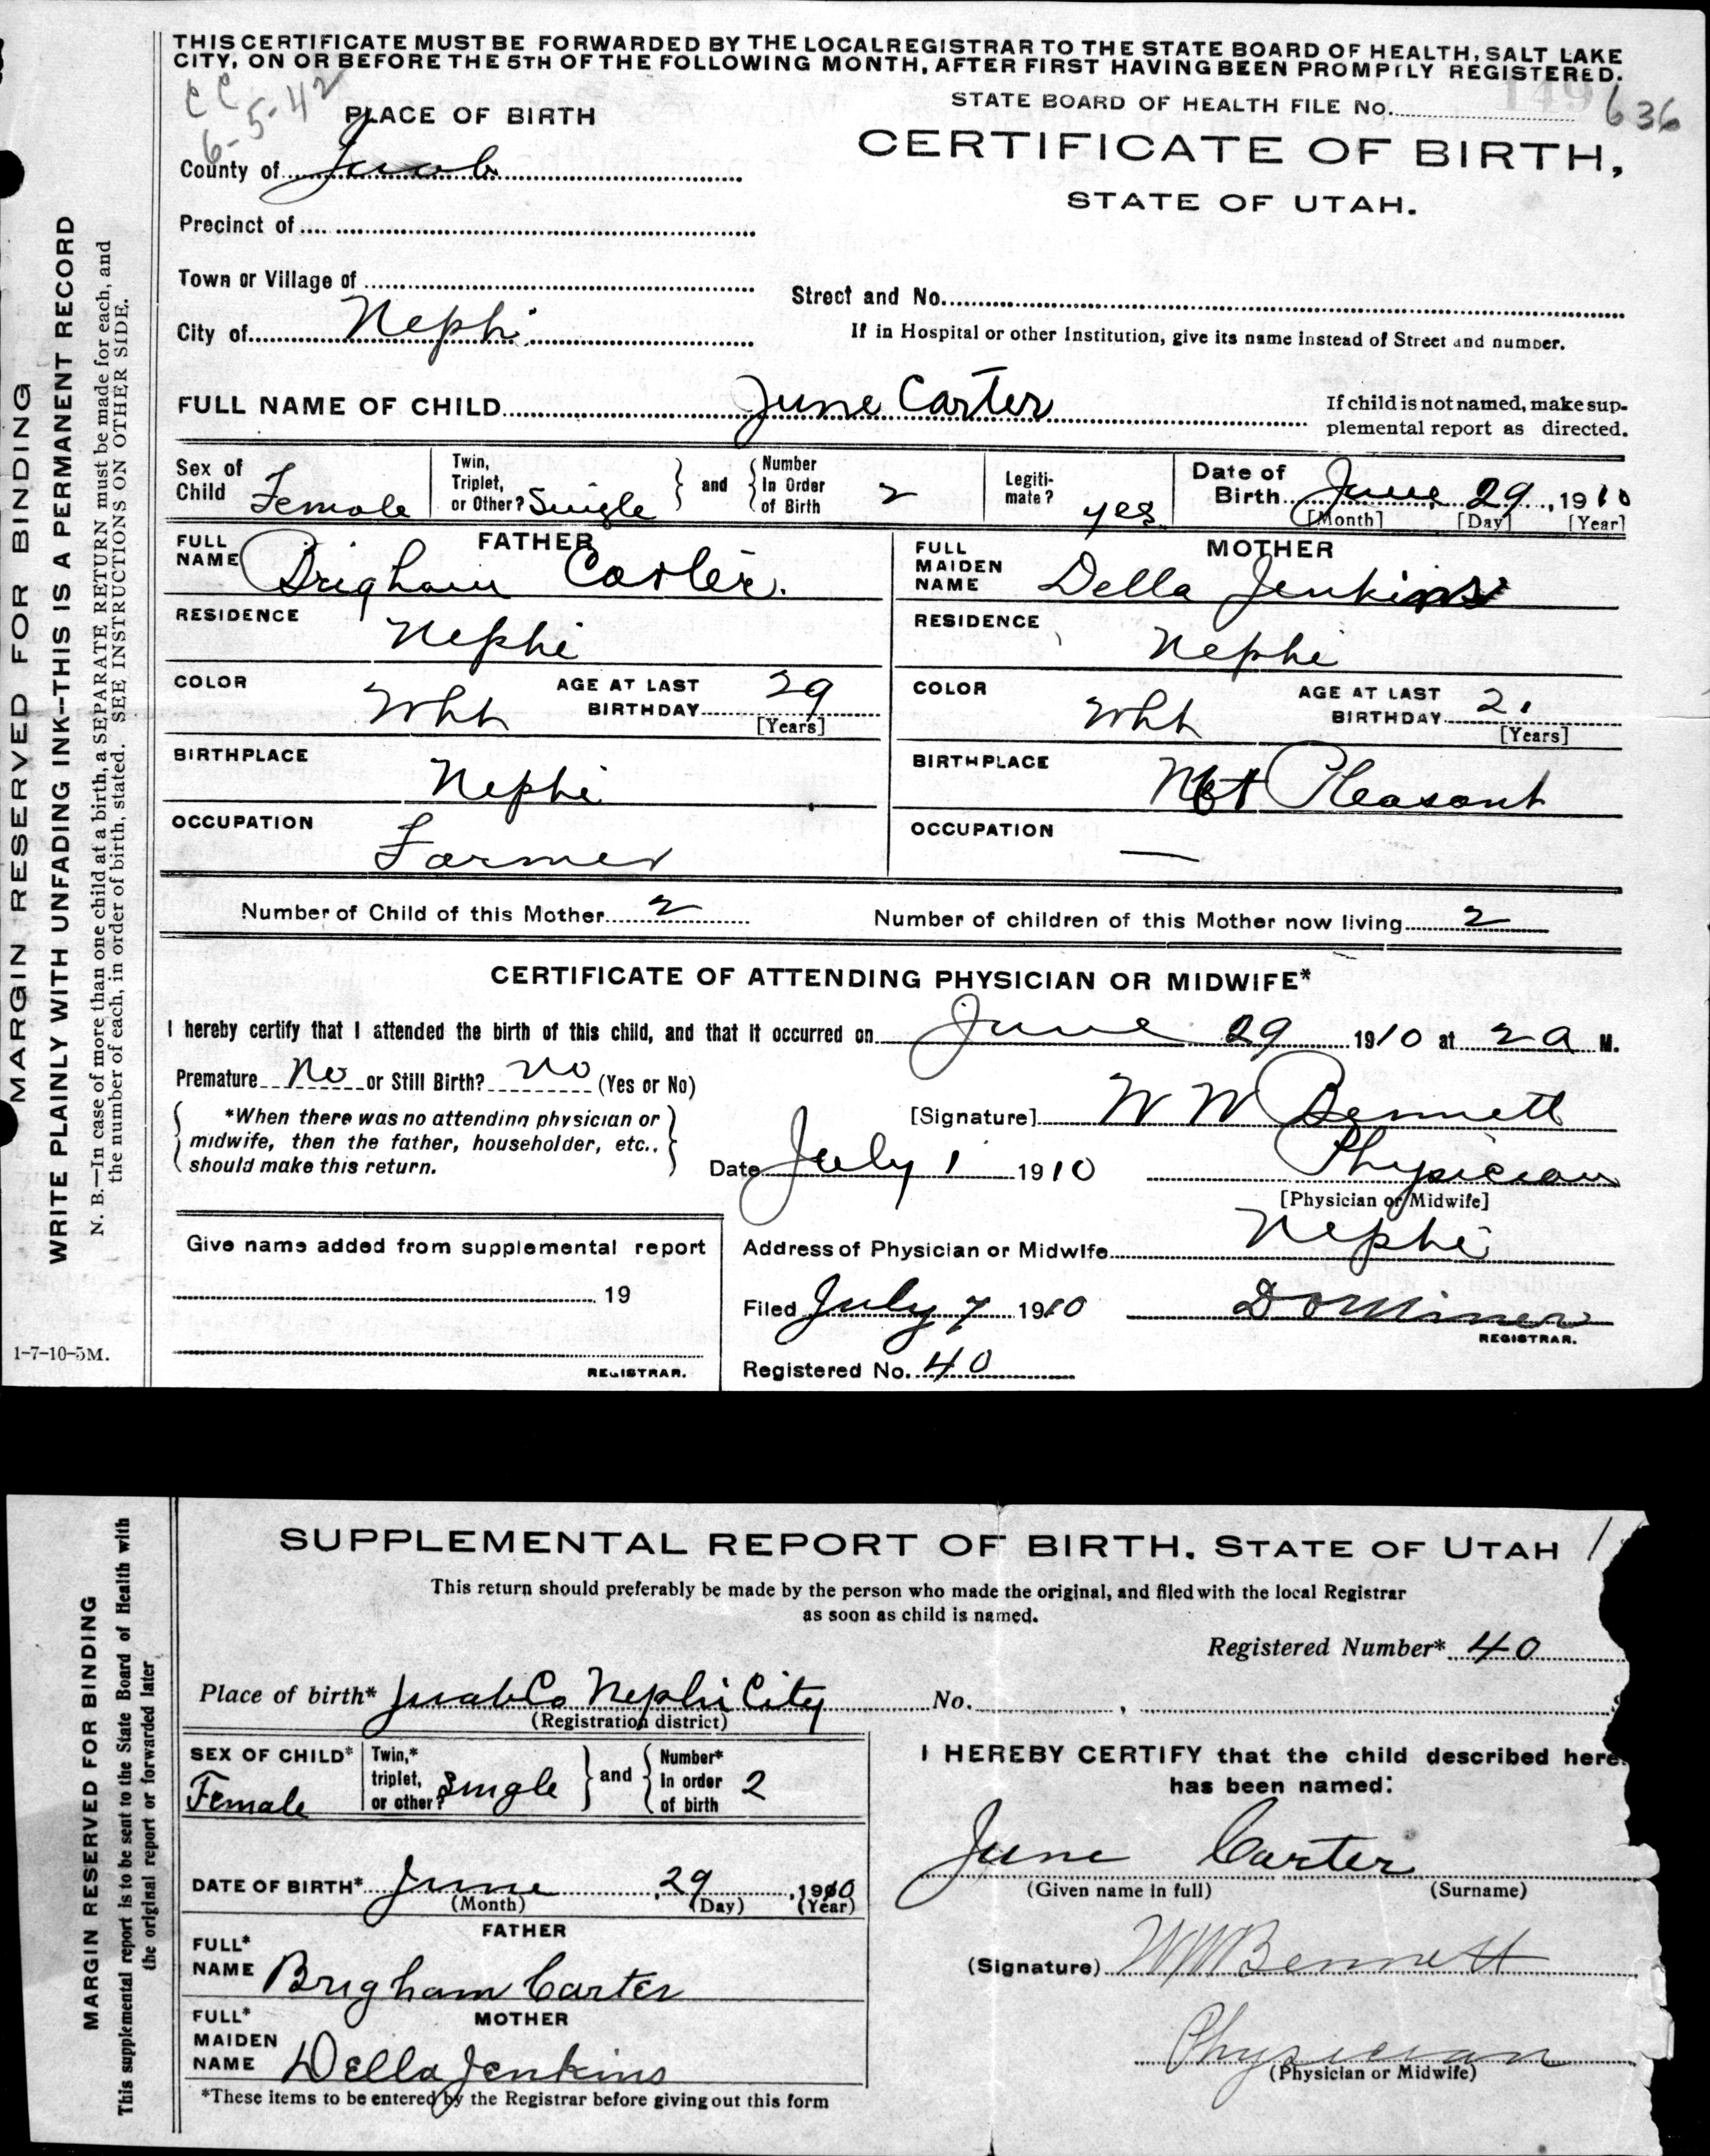 THIS CERTIFICATE MUST BE FORWARDED BY THE LOCAL REGISTRAR TO THE STATE BOARD OF HEALTH, SALT LAKE
CITY, ON OR BEFORE THE 5TH OF THE FOLLOWING MONTH, AFTER FIRST HAVING BEEN PROMPTLY REGISTERED.
CC
6-5-42
STATE BOARD OF HEALTH FILE No. 149 636
PLACE OF BIRTH
CERTIFICATE OF BIRTH,
STATE OF UTAH.
County of Juab
Precinct of
Town or Village of
Street and No.
City of Nephi
If in Hospital or other Institution, give its name instead of Street and number.
FULL NAME OF CHILD June Carter
If child is not named, make sup-
plemental report as directed.
Sex of Child Female
Twin, Triplet, or Other? Single and Number In Order of Birth 2
Legiti-mate? yes
Date of Birth June 29, 1910
[Month] [Day] [Year]
FATHER
FULL NAME Brigham Carter.
RESIDENCE Nephi
COLOR Wht AGE AT LAST BIRTHDAY 29
[Years]
BIRTHPLACE Nephi
OCCUPATION Farmer
MOTHER
FULL MAIDEN NAME Della Jenkins
RESIDENCE Nephi
COLOR Wht AGE AT LAST BIRTHDAY 21
[Years]
BIRTHPLACE Mt Pleasant
OCCUPATION —
Number of Child of this Mother 2 Number of children of this Mother now living 2
CERTIFICATE OF ATTENDING PHYSICIAN OR MIDWIFE*
I hereby certify that I attended the birth of this child, and that it occurred on June 29 1910 at 2 a M.
Premature No or Still Birth? No (Yes or No)
*When there was no attending physician or
midwife, then the father, householder, etc.,
should make this return.
[Signature] W W Bennett
Date July 1 1910 Physician
[Physician or Midwife]
Give name added from supplemental report
19
REGISTRAR.
Address of Physician or Midwife Nephi
Filed July 7 1910 Miner
REGISTRAR.
Registered No. 40
1-7-10-5M.
MARGIN RESERVED FOR BINDING
WRITE PLAINLY WITH UNFADING INK--THIS IS A PERMANENT RECORD
N. B.—In case of more than one child at a birth, a SEPARATE RETURN must be made for each, and
the number of each, in order of birth, stated. SEE INSTRUCTIONS ON OTHER SIDE.
SUPPLEMENTAL REPORT OF BIRTH, STATE OF UTAH
This return should preferably be made by the person who made the original, and filed with the local Registrar
as soon as child is named.
Registered Number* 40
Place of birth* Juab Co Nephi City No. ,
(Registration district)
SEX OF CHILD* Female
Twin,* triplet, or other? Single and Number* In order of birth 2
DATE OF BIRTH* June, 29, 1910
(Month) (Day) (Year)
FATHER
FULL* NAME Brigham Carter
MOTHER
FULL* MAIDEN NAME Della Jenkins
*These items to be entered by the Registrar before giving out this form
I HEREBY CERTIFY that the child described here
has been named:
June Carter
(Given name in full) (Surname)
(Signature) W W Bennett
Physician
(Physician or Midwife)
MARGIN RESERVED FOR BINDING
This supplemental report is to be sent to the State Board of Health with
the original report or forwarded later